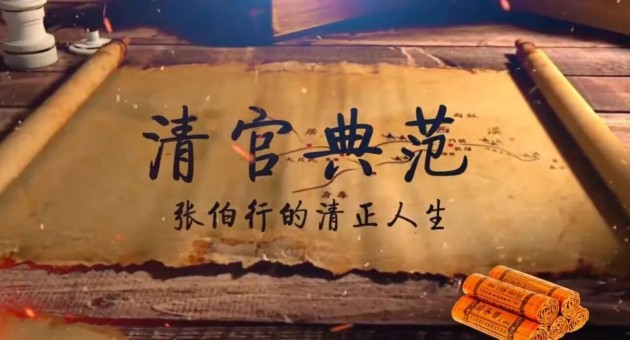 清官典范
张伯行的清正人生